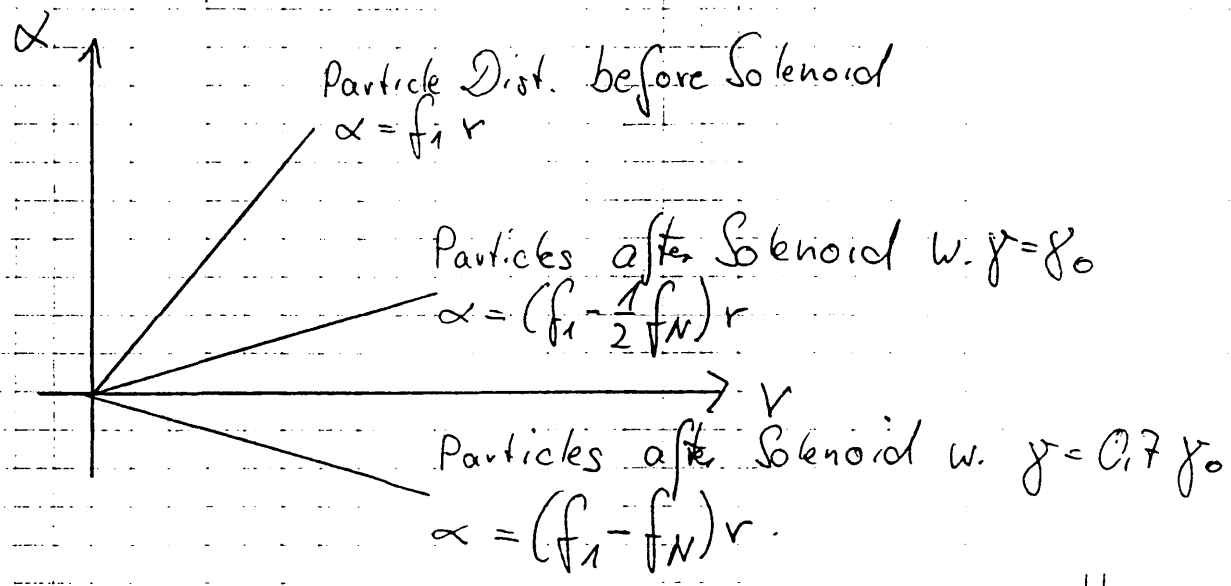 α
Particle Dist. before Solenoid
α = f₁ r
Particles after Solenoid w. γ = γ₀
α = (f₁ - 1/2 f_N) r
r
Particles after Solenoid w. γ = 0,7 γ₀
α = (f₁ - f_N) r.